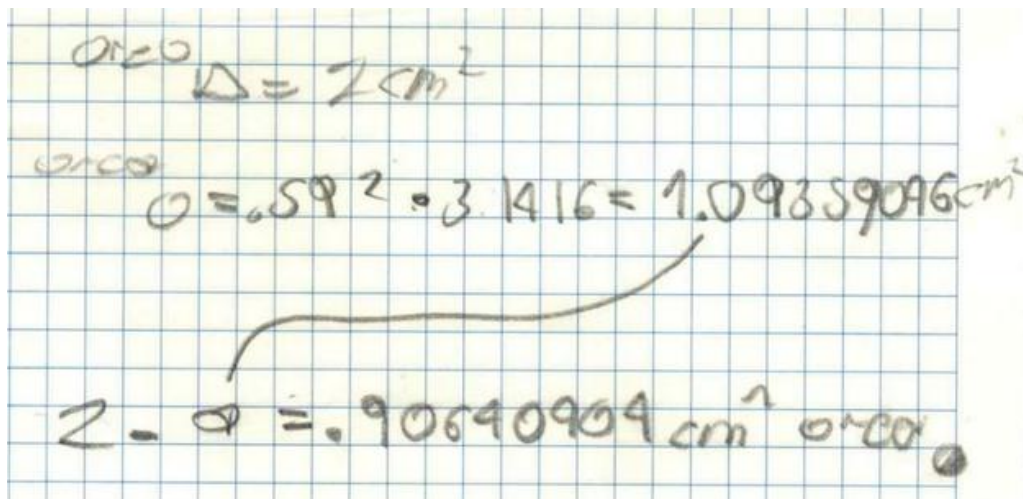 area △ = 2 cm²
area O = .59² • 3.1416 = 1.09359096 cm²
2 - a = .90640904 cm² area.